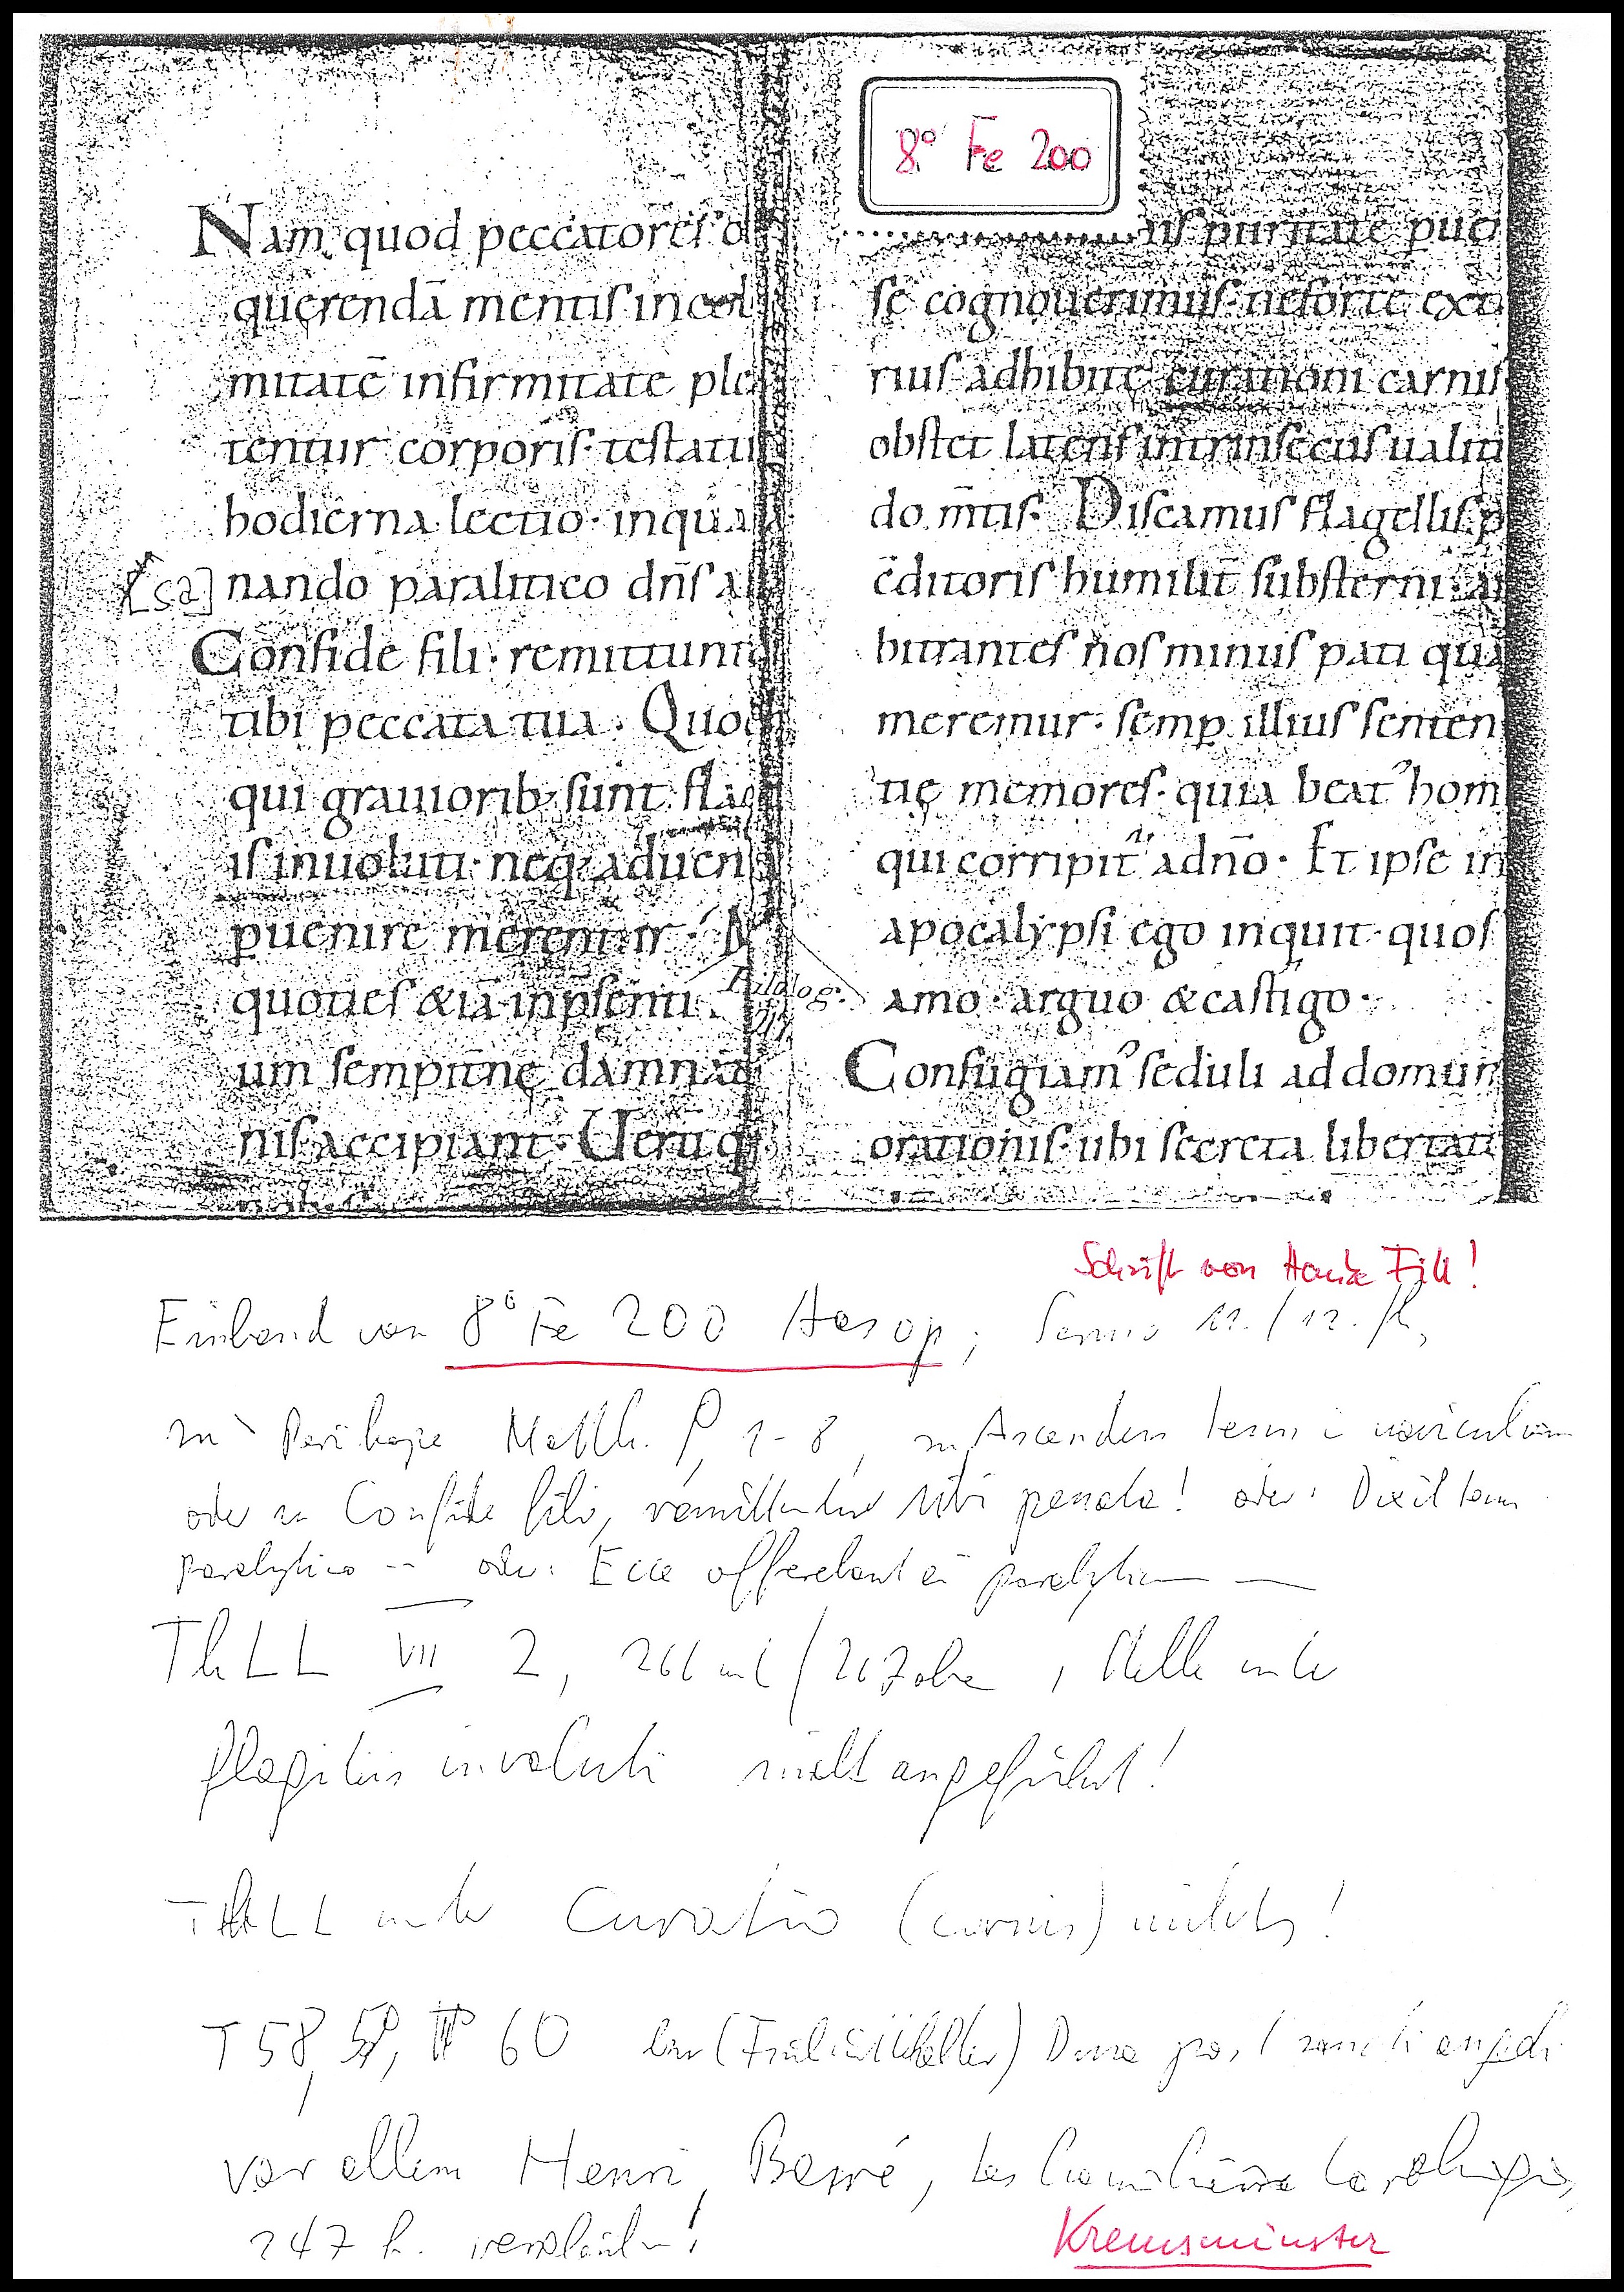 8° Fe 200
Nam quod peccatores o
querendā mentis incol
mitatē infirmitate ple
tentur corporis · testatur
hodierna lectio · in qua
[sa] nando paralitico dn̄s a
Confide fili · remittunt
tibi peccata tua · Quod
qui grauiorib; sunt flag
is inuoluti · neq; ad uen
puenire merentur · N
quoties & iā in psenti
um sempit̄nę damnat
nis accipiant · Uerū q
ris puritate pec
se cognouerimus · ne forte exte
rius adhibitę curationi carnis
obstet latens intrinsecus ualitu
do m̄tis · Discamus flagellis p
c̄ditoris humilit̄ substerni · ar
bitrantes nos minus pati qua
meremur · semp illius senten
tię memores · quia beat᾿ hom
qui corripit᾿ a dn̄o · Et ipse in
apocalypsi ego inquit · quos
amo · arguo & castigo ·
Confugiam᾿ seduli ad domum
orationis · ubi secreta libertate
Schrift von Hauke Fill!
Einband von 8° Fe 200 Aesop; Sermo 11./12. Jh,
zu Perikope Matth. 9, 1-8, zu Ascendens Iesus i naviculam
oder zu Confide fili, remittuntur tibi peccata! oder: Dixit Iesus
paralytico -- oder: Ecce offerebant ei paralyticum --
ThLL VII 2, Stelle unter
flagitiis involuti nicht angeführt!
ThLL unter Curatio (carnis) nichts!
T 58, 59, 60
vor allem Henri Barré, Les homéliaires carolingiens,
247 h.
Kremsmünster